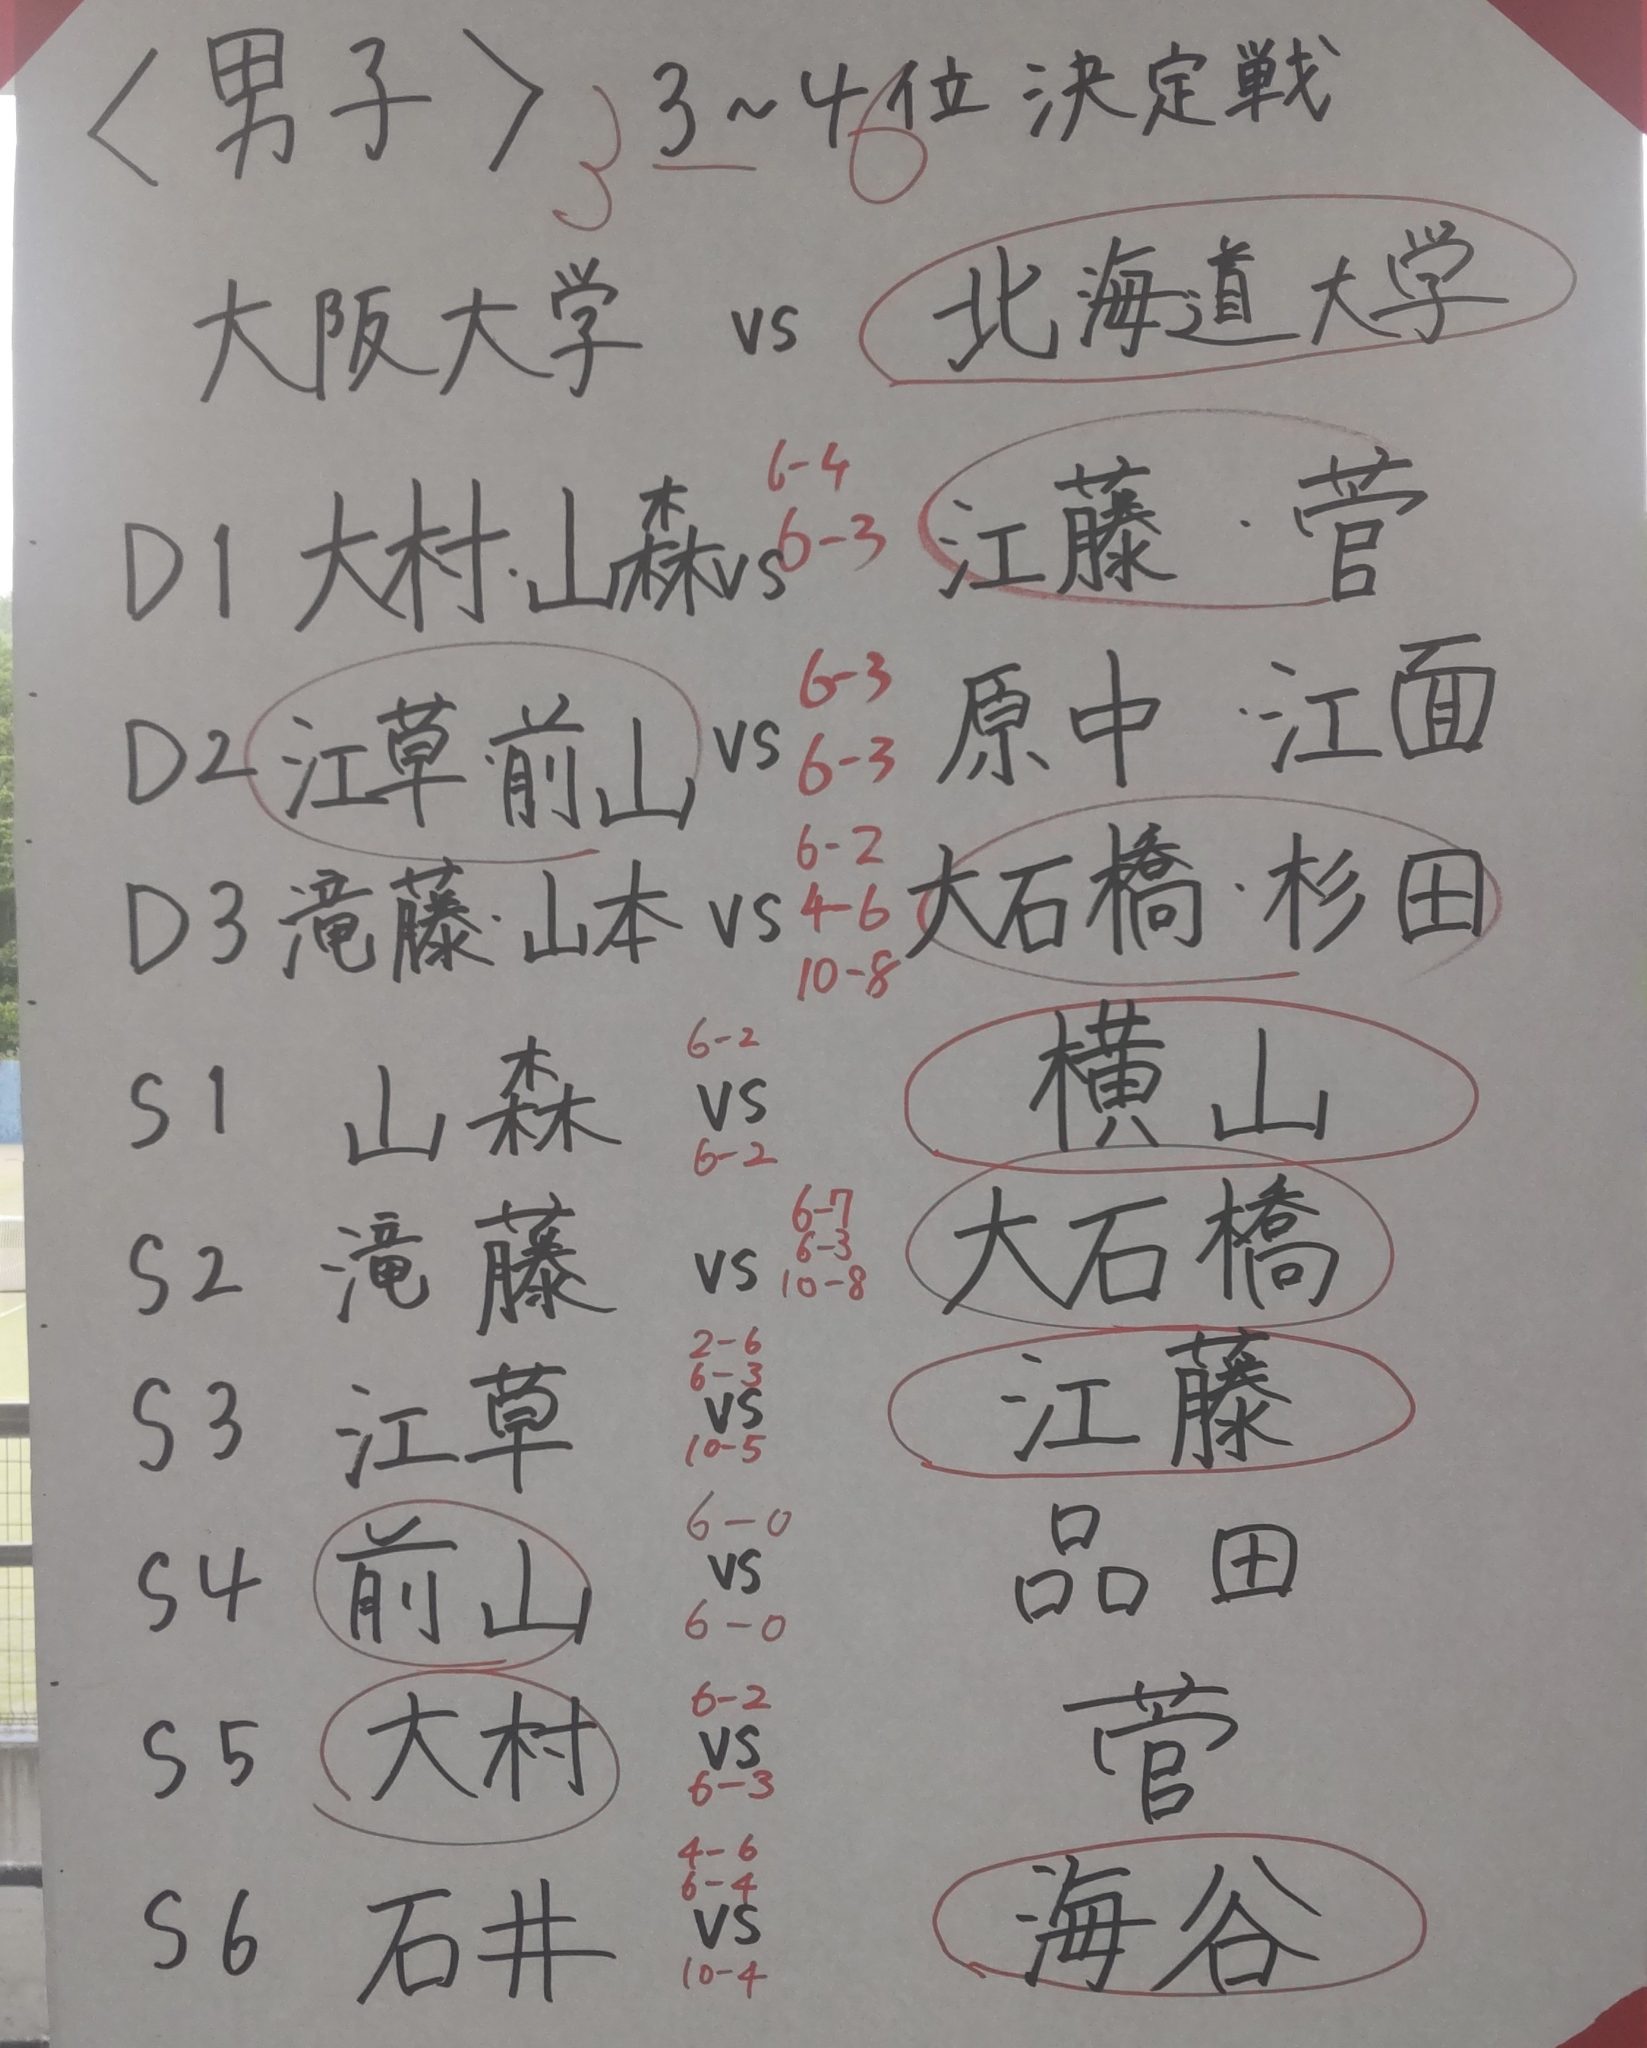 〈男子〉 3~4位決定戦
3 6
大阪大学 vs 北海道大学
6-4
D1 大村・山森 vs 6-3 江藤・菅
6-3
D2 江草・前山 vs 原中・江面
6-3
6-2
D3 滝藤・山本 vs 4-6 大石橋・杉田
10-8
6-2
S1 山森 vs 横山
6-2
6-7
6-3
S2 滝藤 vs 10-8 大石橋
2-6
6-3
S3 江草 vs 江藤
10-5
6-0
S4 前山 vs 品田
6-0
6-2
S5 大村 vs 菅
6-3
4-6
6-4
S6 石井 vs 海谷
10-4